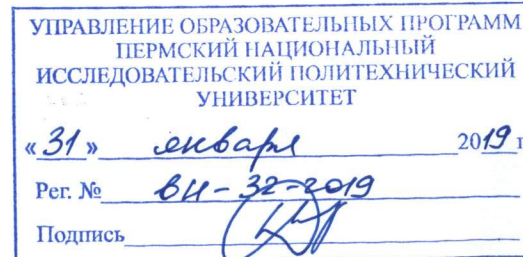 УПРАВЛЕНИЕ ОБРАЗОВАТЕЛЬНЫХ ПРОГРАММ
ПЕРМСКИЙ НАЦИОНАЛЬНЫЙ
ИССЛЕДОВАТЕЛЬСКИЙ ПОЛИТЕХНИЧЕСКИЙ
УНИВЕРСИТЕТ
«31» января 2019 г
Рег. № ВН-32-2019
Подпись